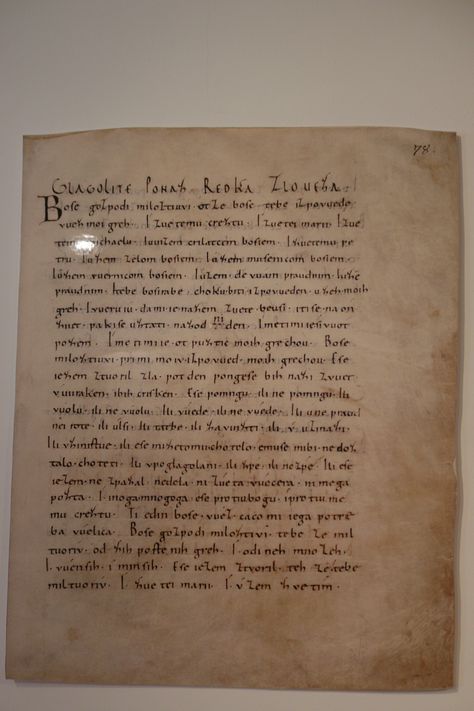 78.
GLAGOLITE PONAZ REDKA ZLOUEZA.
Bose gozpodi miloztiui. otze bose. tebe izpouuede
vuez moi greh. I zuetemu creztu. I zuetei marii. I zue
temu michaelu. Iuuizem crilatcem bosiem. I zuetemu pe
tru. Iuzem zelom bosiem. Iuzem musenicom bosiem.
Iuzem vuernicom bosiem. Iuzem devuam praudnim. Iuzem
praudnim. Itebe bosirabe. chokubiti izpovueden. uzeh moih
greh. I vueruiu. da mi ie nazem zuete beusi. iti se na on
zuuet. pakise uztati. nazodni den. Imeti mi ie sivuot
pozem. Imeti mi ie otpuztic moih grechou. Bose
miloztiuvi. primi moiv izpovued. moih grechou. Ese
iezem ztvoril zla. pot den pongese bih nazi zvuet
vuuraken. ibih crisken. Ese pomngu. ili ne pomngu. Ili
vuolu. ili ne vuolu. Ili vuede. ili ne vuede. Ili u nepraud
nei rote. ili ulsi. Ili tatbe. ili zavuizti. ili v uzmazi.
Ili vzinistue. ili ese mi ze tomu chotelo. emuse mibi ne doz
talo. choteti. Ili vpoglagolani. ili zpe. ili nezpe. Ili ese
iezem. ne zpazal. nedela. ni zueta vuecera. ni mega
pozta. I inoga mnogoga. ese protiubogu. i protiu me
mu creztu. Ti edin bose. vuez. caco mi iega potre
ba vuelica. Bose gozpodi miloztivi. tebe ze mil
tuoriv. od zih postenih greh. I od ineh mnozeh.
I vuensih. i minsih. Ese iezem ztvoril. teh ze tebe
miltuoriv. I zuetei marii. I vzem zvetim.